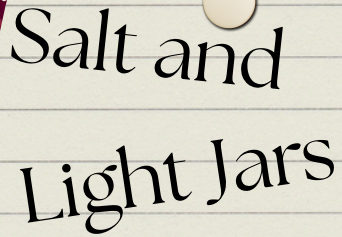 Salt and
Light Jars